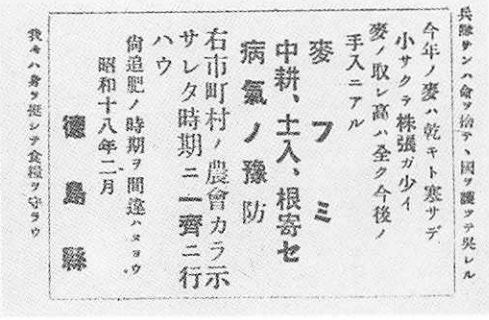 兵隊サンハ命ヲ捨テヽ國ヲ護ツテ呉レル
今年ノ麥ハ乾キト寒サデ
小サクテ株張ガ少イ
麥ノ取レ高ハ全ク今後ノ
手入ニアル
麥フミ
中耕、土入、根寄セ
病氣ノ豫防
右市町村ノ農會カラ示
サレタ時期ニ一齊ニ行
ハウ
尚追肥ノ時期ヲ間違ハヌヨウ
昭和十八年二月
德島縣
我々ハ身ヲ挺シテ食糧ヲ守ラウ